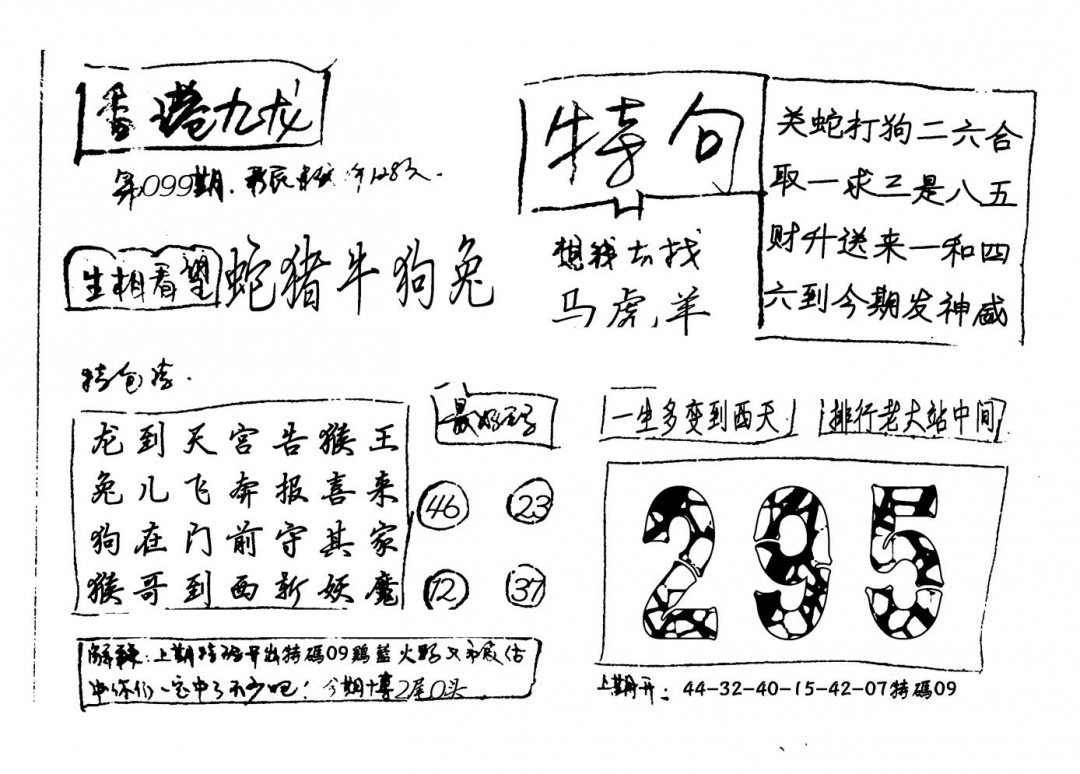 香港九龙
第099期.
特句
关蛇打狗二六合
取一求三是八五
财升送来一和四
六到今期发神威
生相看望
蛇猪牛狗兔
想我去找
马虎,羊
特包诗.
龙到天宫告猴王
兔儿飞奔报喜来
狗在门前守其家
猴哥到西斩妖魔
最好码
46 23
12 37
一生多变到西天.
排行老大站中间
295
解釋:上期特码开出特碼09鷄藍火野又
中你们一定中了不少吧!今期博2尾0头.
上期开:44-32-40-15-42-07特碼09